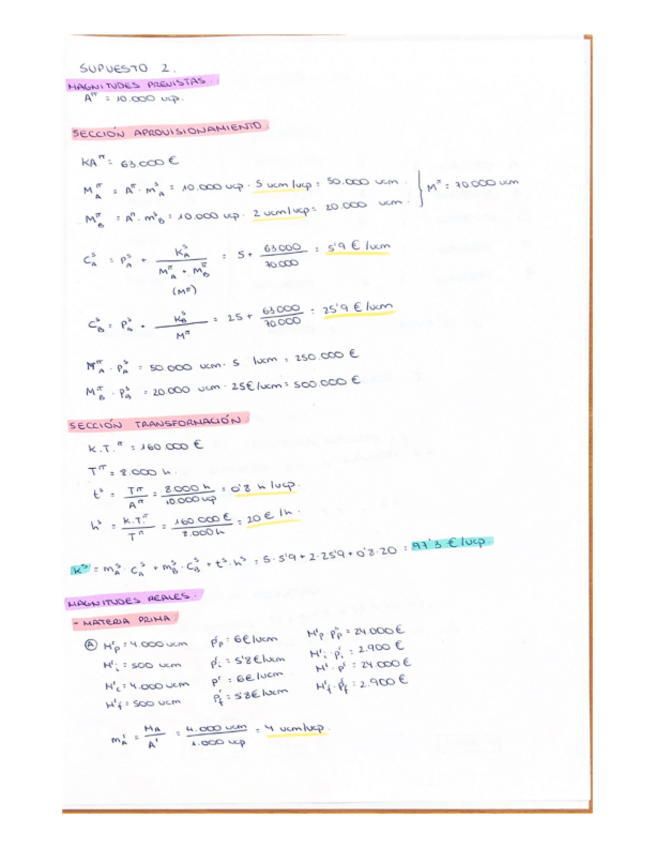 SUPUESTO 2.
MAGNITUDES PREVISTAS
A^π = 10.000 ucp.
SECCIÓN APROVISIONAMIENTO
KA^π = 63.000 €
M_A^π = A^π · m_A^s = 10.000 ucp · 5 ucm/ucp = 50.000 ucm. } M^π = 70.000 ucm
M_B^π = A^π · m_B^s = 10.000 ucp · 2 ucm/ucp = 20.000 ucm.
C_A^s = P_A^s + K_A^s / (M_A^π + M_B^π) (M^π) = 5 + 63.000 / 70.000 = 5'9 €/ucm
C_B^s = P_A^s + K_B^s / M^π = 25 + 63.000 / 70.000 = 25'9 €/ucm
M_A^π · P_A^s = 50.000 ucm · 5 /ucm = 250.000 €
M_B^π · P_A^s = 20.000 ucm · 25€/ucm = 500.000 €
SECCIÓN TRANSFORMACIÓN
K.T.^π = 160.000 €
T^π = 8.000 h.
t^s = T^π / A^π = 8.000 h / 10.000 ucp = 0'8 h/ucp.
h^s = K.T.^π / T^π = 160.000 € / 8.000 h = 20 €/h.
K^s = m_A^s · C_A^s + m_B^s · C_B^s + t^s · h^s = 5 · 5'9 + 2 · 25'9 + 0'8 · 20 = 97'3 €/ucp
MAGNITUDES REALES.
- MATERIA PRIMA
Ⓐ M^r_p = 4.000 ucm p^r_p = 6€/ucm M^r_p p^r_p = 24.000 €
M^r_i = 500 ucm p^r_i = 5'8€/ucm M^r_i · p^r_i = 2.900 €
M^r_c = 4.000 ucm p^r = 6€/ucm M^r · p^r = 24.000 €
M^r_f = 500 ucm p^r_f = 5'8€/ucm M^r_f · p^r_f = 2.900 €
m_A^r = M_A / A^r = 4.000 ucm / 1.000 ucp = 4 ucm/ucp.